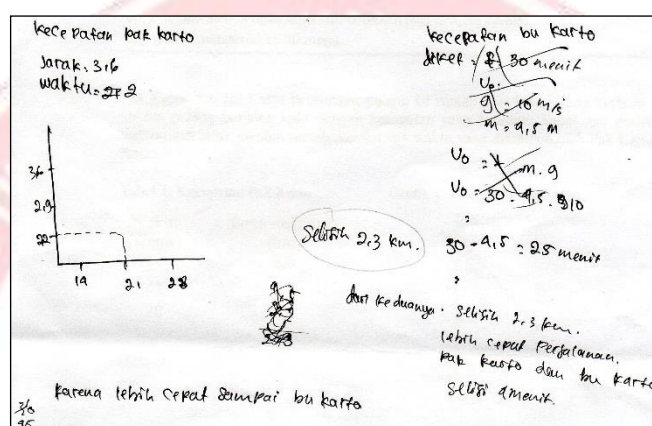 kecepatan pak karto
Jarak: 3,6
waktu = 2
3,6
2,9
2,2
14
21
28
kecepatan bu karto
diket = 30 menit
U0
g = 10 m/s
m = 4,5 m
U0 = m . g
U0 = 30 . 4,5 . 10
30 - 4,5 = 25 menit
Selisih 2,3 km.
dari keduanya . Selisih 2,3 km.
lebih cepat Perjalanan.
pak karto dan bu karto
Selisi 4 menit.
karena lebih cepat Sampai bu karto